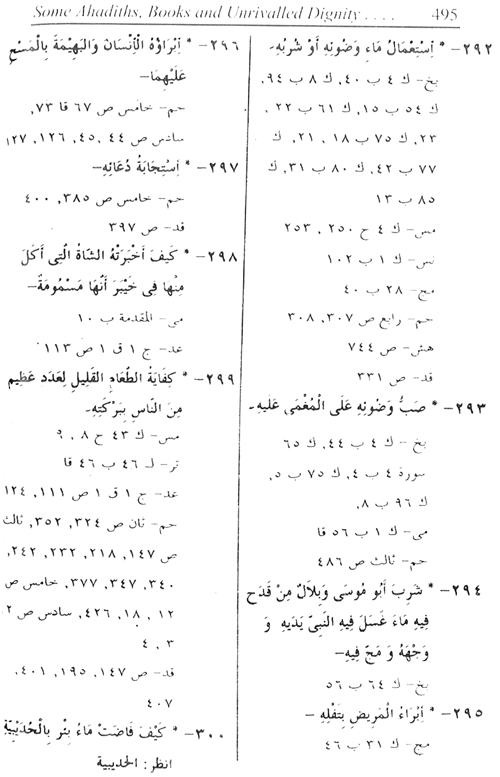 Some Ahadiths, Books and Unrivalled Dignity . . . . 495
٢٩٢- * اِسْتِعْمَالُ مَاءِ وَضُوئِهِ أَوْ شُرْبُهِ-
بخ- ك ٤ ب ٤٠, ك ٨ ب ٩٤,
ك ٥٤ ب ١٥, ك ٦١ ب ٢٢,
٢٣, ك ٧٥ ب ١٨, ٢١, ك
٧٧ ب ٤٢, ك ٨٠ ب ٣١, ك
٨٥ ب ١٣
مس- ك ٤ ح ٢٥٠, ٢٥٣
نس- ك ١ ب ١٠٢
مج- ٢٨ ب ٤٠
حم- رابع ص ٣٠٧, ٣٠٨
هش- ص ٧٤٤
قد- ص ٣٣١
٢٩٣- * صَبُّ وَضُوئِهِ عَلَى الْمُغْمَى عَلَيهِ-
بخ- ك ٤ ب ٤٤, ك ٦٥
سورة ٤ ب ٤, ك ٧٥ ب ٥,
ك ٩٦ ب ٨,
مى- ك ١ ب ٥٦ قا
حم- ثالث ص ٤٨٦
٢٩٤- * شَرِبَ أَبُو مُوسَى وَبِلاَلٌ مِنْ قَدَح
فِيهِ مَاءَ غَسَلَ فِيهِ النَبىّ يَدَيهِ وَ
وَجْهَهُ وَ مَجّ فِيهِ-
بخ- ك ٦٤ ب ٥٦
٢٩٥- * أِبْرَاءُ الْمَرِيضِ بِتَفْلِهِ-
مج- ك ٣١ ب ٤٦
٢٩٦- * اِبْرَاؤُهُ الْأِنْسَانَ وَالبَهِيْمَةَ بِالْمَسْحِ
عَلَيْهِمَا-
حم- خامس ص ٦٧ قا ٧٣,
سادس ص ٤٤, ٤٥, ١٢٦, ١٢٧
٢٩٧- * اِسْتِجَابَةُ دُعَائِهِ-
حم- خامس ص ٣٨٥, ٤٠٠
قد- ص ٣٩٧
٢٩٨- * كَيفَ أَخْبَرَتْهُ الشَاةُ الْتِى أَكَلَ
مِنْها فِى خَيْبَرَ أَنّهَا مَسْمُومَةٌ-
مى- المقدمة ب ١٠
عد- ج ١ ق ١ ص ١١٣
٢٩٩- * كِفَايَةُ الطّعَامِ القَلِيلِ لِعَدَد عَظِيم
مِنَ النَاسِ بِبَرَكَتِهِ-
مس- ك ٤٣ ح ٨, ٩
تر- ك ٤٦ ب ٤٦ قا
عد- ج ١ ق ١ ص ١١١, ١٢٤
حم- ثان ص ٣٢٤, ٣٥٢, ثالث
ص ١٤٧, ٢١٨, ٢٣٢, ٢٤٢,
٣٤٠, ٣٤٧, ٣٧٧, خامس ص
١٢, ١٨, ٤٢٦, سادس ص ٢
٣, ٤
قد- ص ١٤٧, ١٩٥, ٤٠١,
٤٠٧
٣٠٠- * كَيْفَ فَاضَتْ مَاءُ بِئْر بِالْحُدَيْبِيّةِ
انظر: الحديبية